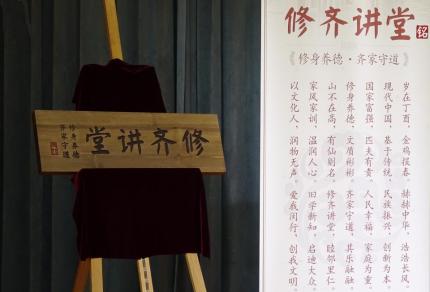 修齐讲堂
修身养德
齐家守道
修齐讲堂
铭
《修身养德·齐家守道》
岁在丁酉，金鸡报春。赫赫中华，浩浩长风。
现代中国，基于传统。民族振兴，创新为本。
国家富强，匹夫有责。人民幸福，家庭为重。
修身养德，文质彬彬。齐家守道，其乐融融。
山不在高，有仙则名。修齐讲堂，睦邻里仁。
家风家训，温润人心。旧学新知，启迪大众。
以文化人，润物无声。爱我闵行，创我文明。